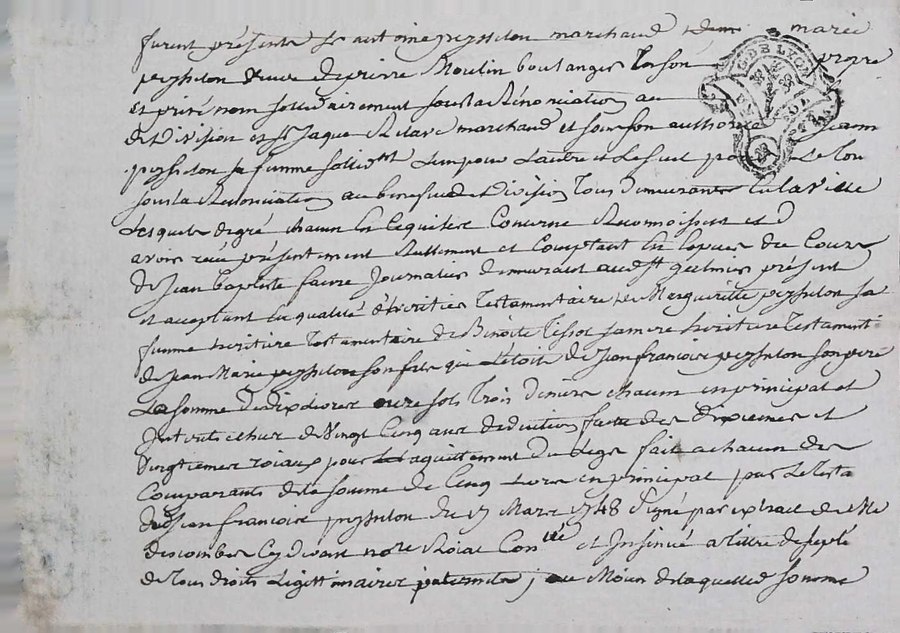 furent présents Sr antoine peysselon marchand marie
peysselon veuve de pierre Moulin boulanger En son propre
Et privé nom sollidairement sous la Rénonciation au
de Division et Sr Jaque marchand et sous son authorité
peysselon sa femme sollidt L'un pour L'autre et Le seul pour Le tou
sous la Renonciation au benefice de Division Tous demeurants En la ville
Lesquels de gré chacun En Ce qui Les Concerne Reconnoissent
avoir receu présentement Reellement et Comptant En Especes du Cours
de Jean baptiste faivre Journalier demeurant présent
et acceptant En qualité d'heritier Testamentaire de Marguerite peysselon sa
femme heritiere Testamentaire de Benoite Tissot sa mere heritiere Testamentt
de Jean Marie peysselon son fils qui L'étoit de Jean francois peysselon son pere
La somme de dix Livres onze sols Trois deniers chacun en principal et
Interets de Vingt Cinq ans deduction faite des dixiemes et
Vingtiemes roiaux pour acquittement du Legs fait a chacun des
Comparants de la somme de Cinq Livres en principal par Le Testa
de Jean francois peysselon du 17 Mars 1748 Signé par extrait de Me
descombes Cy devant nore Roial Conlle et Insinué
de Tous droits Legittimaires paternels ; au Moien de laquelle somme
G. DE LYON